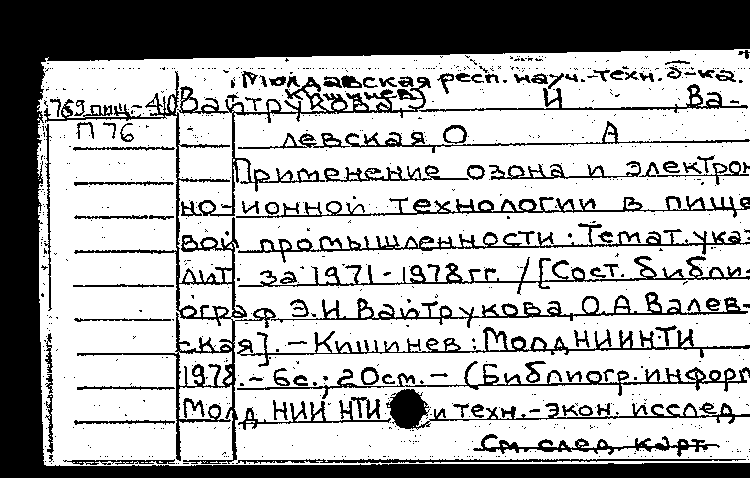 Молдавская респ. науч.-техн. б-ка.
(Кишинев)
769 пищ.-410 Вайтрукова, И , Ва-
П 76 левская, О А
Применение озона и электрон
но-ионной технологии в пище
вой промышленности : Темат. указ
лит. за 1971-1978 гг. / [Сост. библи-
ограф Э.И. Вайтрукова, О.А. Валев-
ская]. – Кишинев : МолдНИИНТИ,
1978. – 6с.; 20см. – (Библиогр. информ
Молд. НИИ НТИ и техн.-экон. исслед
См. след. карт.